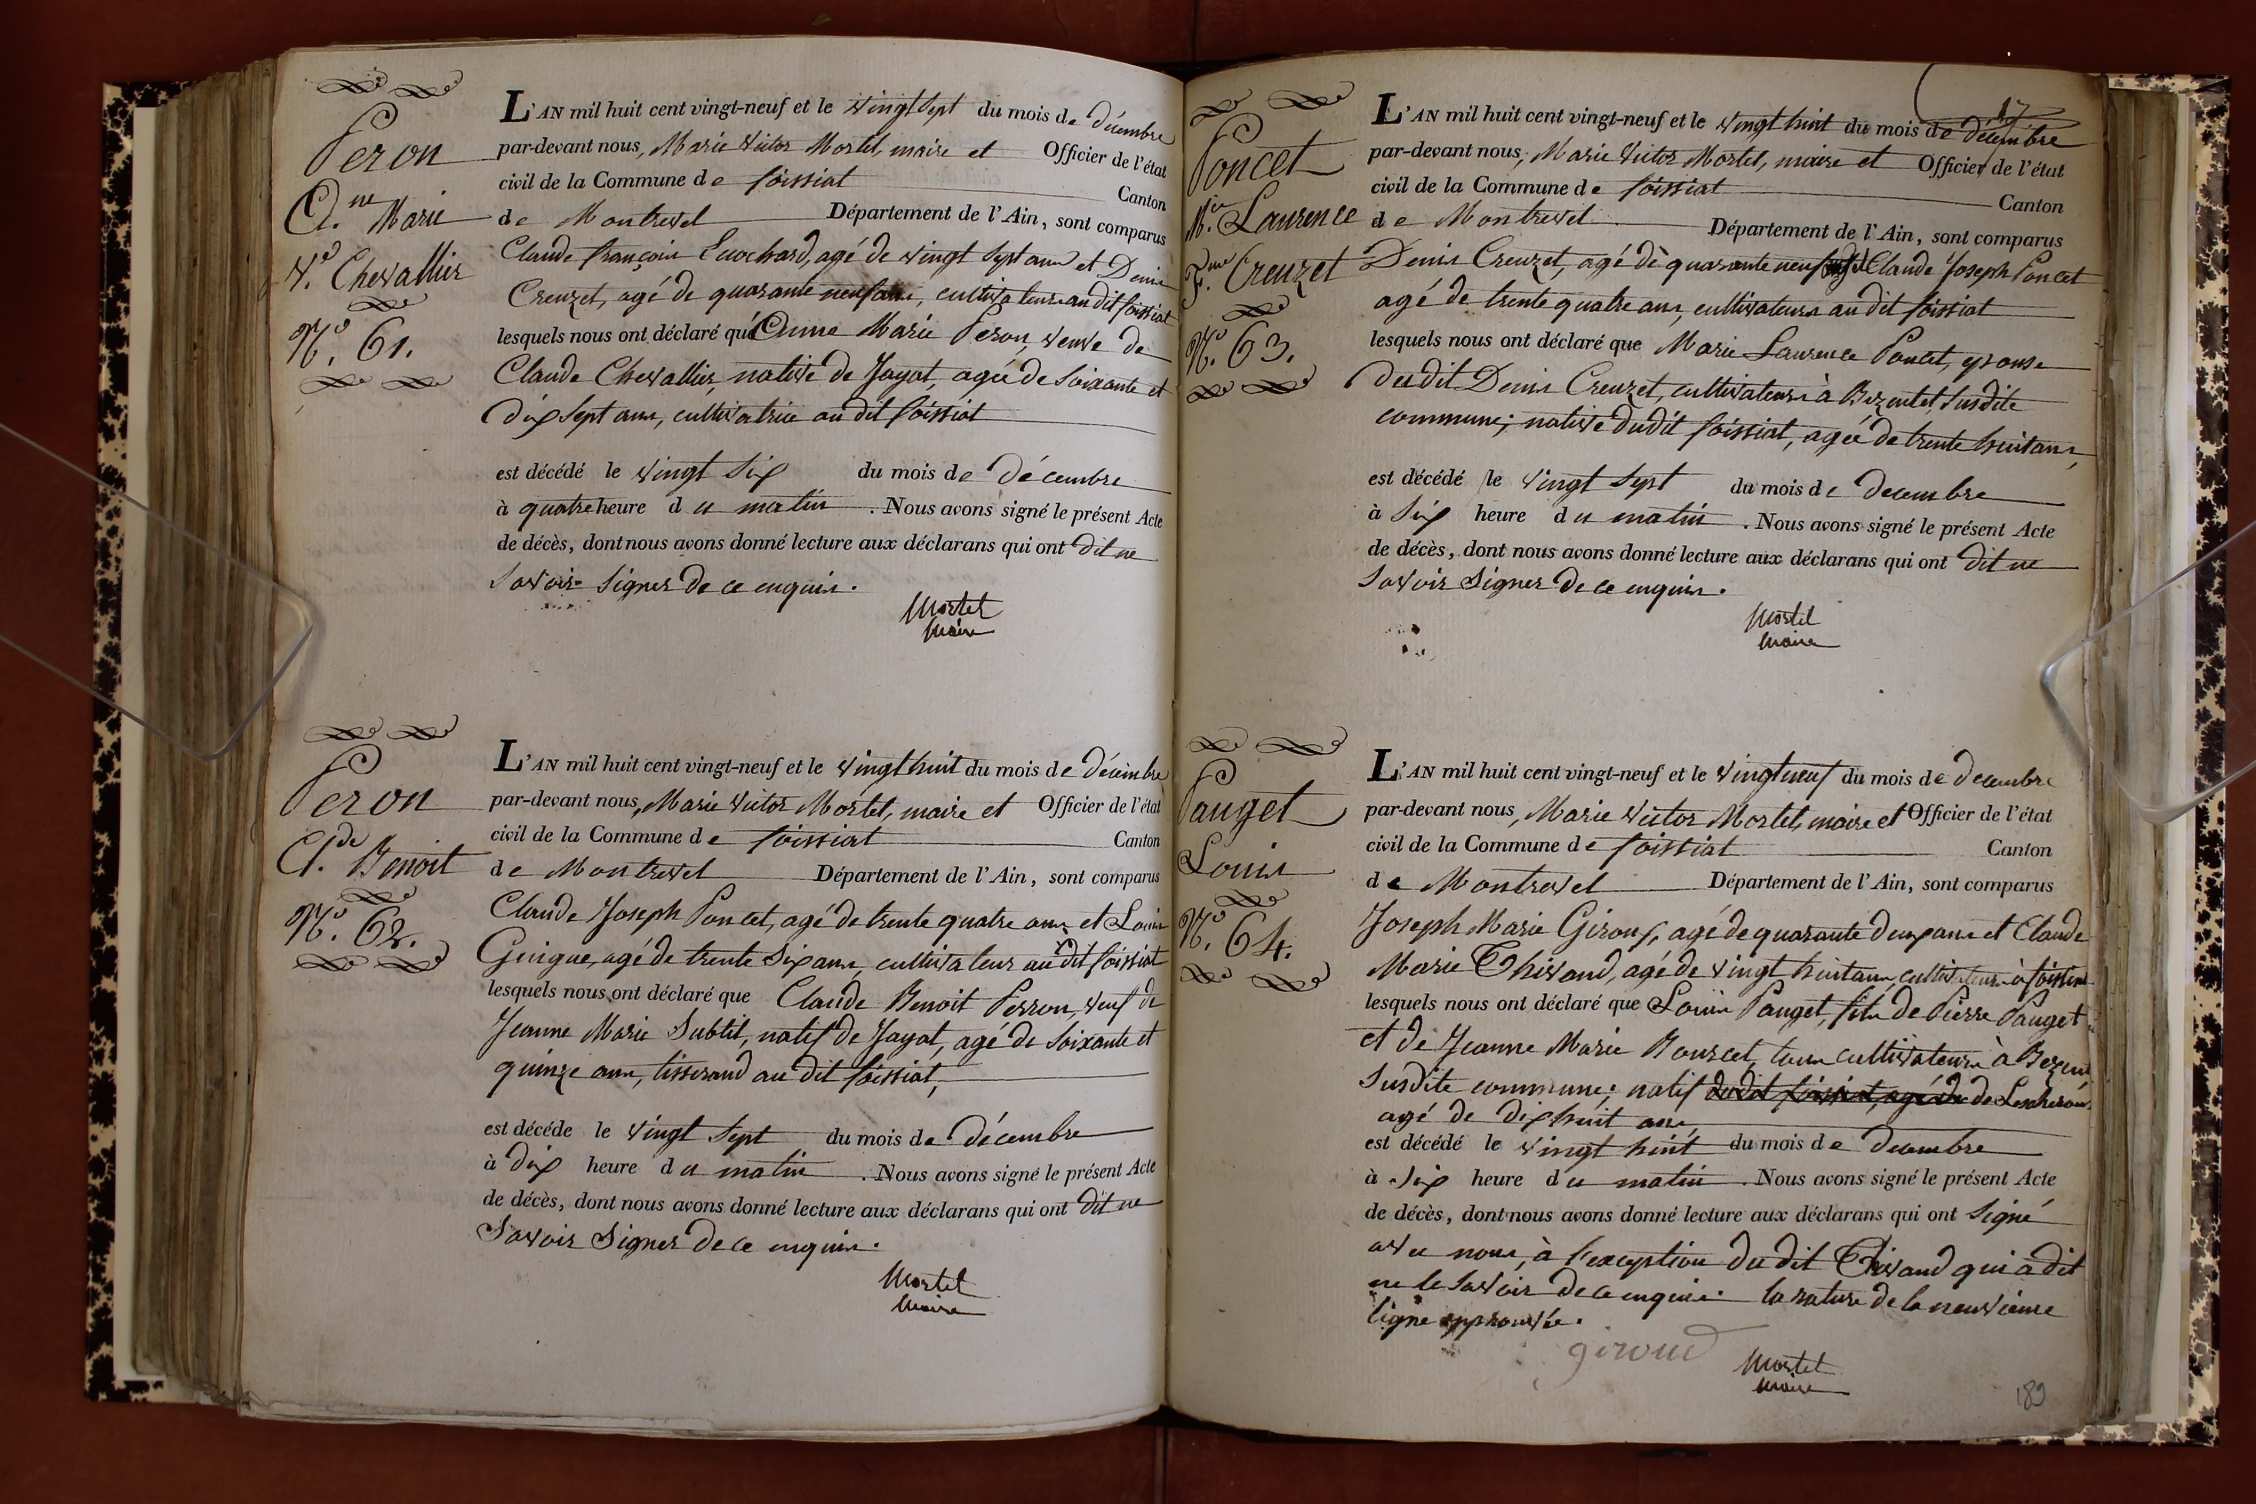 Peron
Ane Marie
Ve Chevallier
No. 61.
L'AN mil huit cent vingt-neuf et le vingt sept du mois de décembre
par-devant nous, Marie Victor Mortel, maire et Officier de l'état
civil de la Commune de foissiat Canton
de Montrevel Département de l'Ain, sont comparus
Claude françois Evochard, agé de vingt sept ans et Denis
Creuzet, agé de quarante neuf ans, cultivateurs au dit foissiat
lesquels nous ont déclaré qu'Anne Marie Peron, veuve de
Claude Chevallier, native de Jayat, agée de soixante et
dix sept ans, cultivatrice au dit foissiat
est décédé le vingt six du mois de décembre
à quatre heure du matin. Nous avons signé le présent Acte
de décès, dont nous avons donné lecture aux déclarans qui ont dit ne
savoir signer de ce enquis.
Mortel
Maire
Peron
Cde Benoit
No. 62.
L'AN mil huit cent vingt-neuf et le vingt huit du mois de décembre
par-devant nous, Marie Victor Mortel, maire et Officier de l'état
civil de la Commune de foissiat Canton
de Montrevel Département de l'Ain, sont comparus
Claude Joseph Poncet, agé de trente quatre ans et Louis
Guigue, agé de trente six ans, cultivateur au dit foissiat
lesquels nous ont déclaré que Claude Benoit Perron, veuf de
Jeanne Marie Subtil, natif de Jayat, agé de soixante et
quinze ans, tisserand au dit foissiat,
est décéde le vingt sept du mois de décembre
à dix heure du matin. Nous avons signé le présent Acte
de décès, dont nous avons donné lecture aux déclarans qui ont dit ne
savoir signer de ce enquis.
Mortel
Maire
17
Poncet
Mie Laurence
Fme Creuzet
No. 63.
L'AN mil huit cent vingt-neuf et le vingt huit du mois de décembre
par-devant nous, Marie Victor Mortel, maire et Officier de l'état
civil de la Commune de foissiat Canton
de Montrevel Département de l'Ain, sont comparus
Denis Creuzet, agé de quarante neuf Claude Joseph Poncet
agé de trente quatre ans, cultivateurs au dit foissiat
lesquels nous ont déclaré que Marie Laurence Poncet, epouse
du dit Denis Creuzet, cultivateurs à Bezentet, susdite
commune; native dudit foissiat, agée de trente huit ans,
est décédé le vingt sept du mois de decembre
à six heure du matin. Nous avons signé le présent Acte
de décès, dont nous avons donné lecture aux déclarans qui ont dit ne
savoir signer de ce enquis.
Mortel
Maire
Pauget
Louis
No. 64.
L'AN mil huit cent vingt-neuf et le vingt neuf du mois de decembre
par-devant nous, Marie Victor Mortel, maire et Officier de l'état
civil de la Commune de foissiat Canton
de Montrevel Département de l'Ain, sont comparus
Joseph Marie Giroux, agé de quarante deux ans et Claude
Marie Thivand, agé de vingt huit ans, cultivateurs à foissiat
lesquels nous ont déclaré que Louis Pauget, fils de Pierre Pauget
et de Jeanne Marie Bourcet, tous cultivateurs à
susdite commune; natif dudit foissiat, agé de de Lescheroux
agé de dix huit ans,
est décédé le vingt huit du mois de decembre
à six heure du matin. Nous avons signé le présent Acte
de décès, dont nous avons donné lecture aux déclarans qui ont signé
avec nous, à l'exception du dit Thivand qui a dit
ne le savoir de ce enquis. la rature de la neuvième
ligne approuvée.
giroud
Mortel
Maire
189